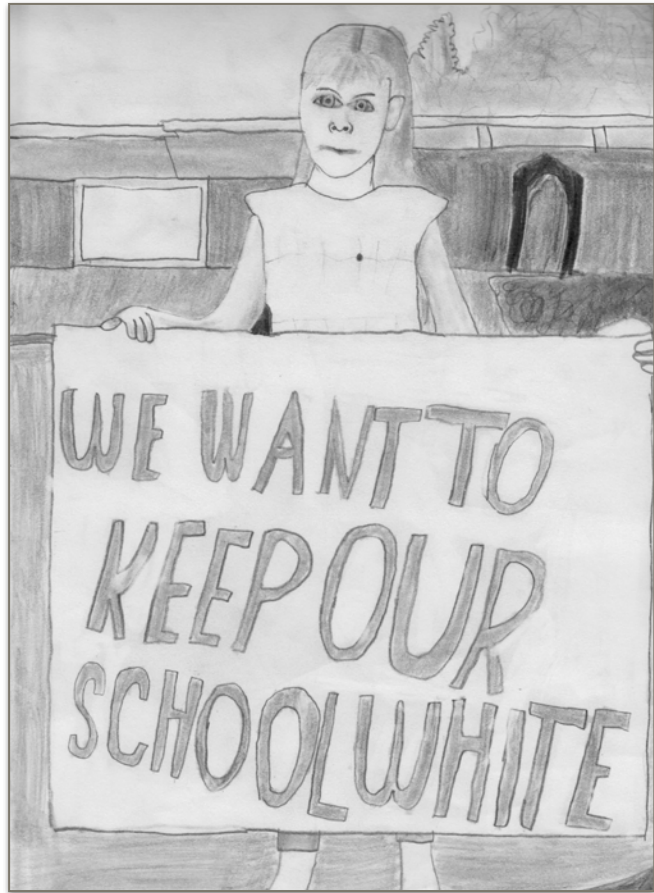 WE WANT TO
KEEP OUR
SCHOOL WHITE